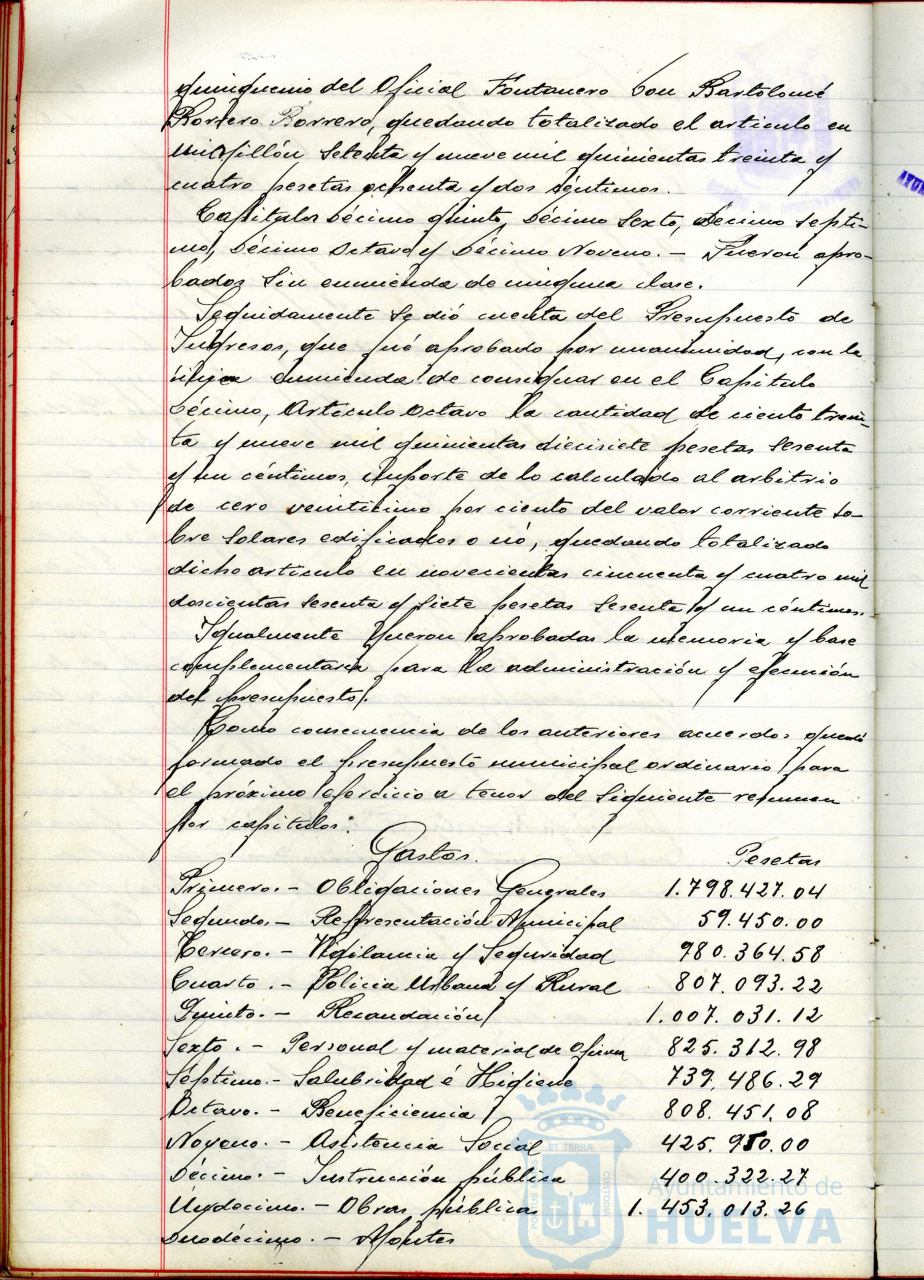 quinquenio del Oficial Fontanero Don Bartolomé
Borrero Borrero, quedando totalizado el articulo en
un millón setenta y nueve mil quinientas treinta y
cuatro pesetas ochenta y dos céntimos.
Capitulos Décimo quinto, Décimo Sexto, Décimo Septi-
mo, Décimo Octavo y Décimo Noveno. - Fueron apro-
bados sin enmienda de ninguna clase.
Seguidamente se dió cuenta del Presupuesto de
Ingresos, que fué aprobado por unanimidad, con la
única enmienda de consignar en el Capitulo
Décimo, Articulo Octavo la cantidad de ciento trein-
ta y nueve mil quinientas diecisiete pesetas sesenta
y un céntimos, importe de lo calculado al arbitrio
de cero veinticinco por ciento del valor corriente so-
bre solares edificados o nó, quedando totalizado
dicho articulo en novecientas cincuenta y cuatro mil
doscientas sesenta y siete pesetas sesenta y un céntimos.
Igualmente fueron aprobadas la memoria y base
complementaria para la administración y ejecución
del presupuesto.
Como consecuencia de los anteriores acuerdos quedó
formado el presupuesto municipal ordinario para
el próximo ejercicio a tenor del siguiente resumen
por capitulos:
Gastos. Pesetas
Primero. - Obligaciones Generales 1.798.427.04
Segundo. - Representación Municipal 59.450.00
Tercero. - Vigilancia y Seguridad 980.364.58
Cuarto. - Policia Urbana y Rural 807.093.22
Quinto. - Recaudación 1.007.031.12
Sexto. - Personal y material de Oficina 825.312.98
Séptimo. - Salubridad é Higiene 739.486.29
Octavo. - Beneficiencia 808.451.08
Noveno. - Asistencia Social 425.950.00
Décimo. - Instrucción pública 400.322.27
Undécimo. - Obras públicas 1.453.013.26
Duodécimo. - Montes
Ayuntamiento de
HUELVA